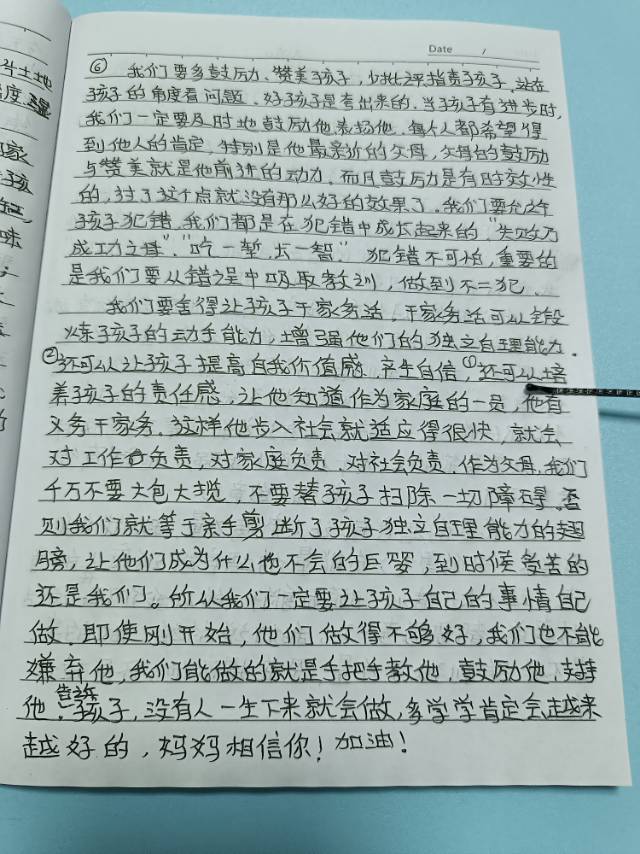 Date /
斗土地
⑥ 我们要多鼓励、赞美孩子,少批评指责孩子,站在
度,强
孩子的角度看问题。好孩子是夸出来的,当孩子有进步时,
我们一定要及时地鼓励他表扬他,每个人都希望得
到他人的肯定,特别是他最亲近的父母,父母的鼓励
家
与赞美就是他前进的动力。而且鼓励是有时效性
孩
的,过了这个点就没有那么好的效果了。我们要允许
孩子犯错,我们都是在犯错中成长起来的"失败乃
味
成功之母"、"吃一堑,长一智"犯错不可怕,重要的
是我们要从错误中吸取教训,做到不二犯。
我们要舍得让孩子干家务活,干家务活可以锻
炼孩子的动手能力,增强他们的独立自理能力。
②还可以让孩子提高自我价值感,产生自信,①还可以培
养孩子的责任感,让他知道作为家庭的一员,他有
义务干家务。这样他步入社会就适应得很快,就会
对工作负责,对家庭负责,对社会负责。作为父母,我们
千万不要大包大揽,不要替孩子扫除一切障碍。否
则我们就等于亲手剪断了孩子独立自理能力的翅
膀,让他们成为什么也不会的巨婴,到时候受苦的
还是我们。所以我们一定要让孩子自己的事情自己
做,即使刚开始,他们做得不够好,我们也不能
嫌弃他,我们能做的就是手把手教他,鼓励他,支持
他。告诉孩子,没有人一生下来就会做,多学学肯定会越来
越好的,妈妈相信你!加油!